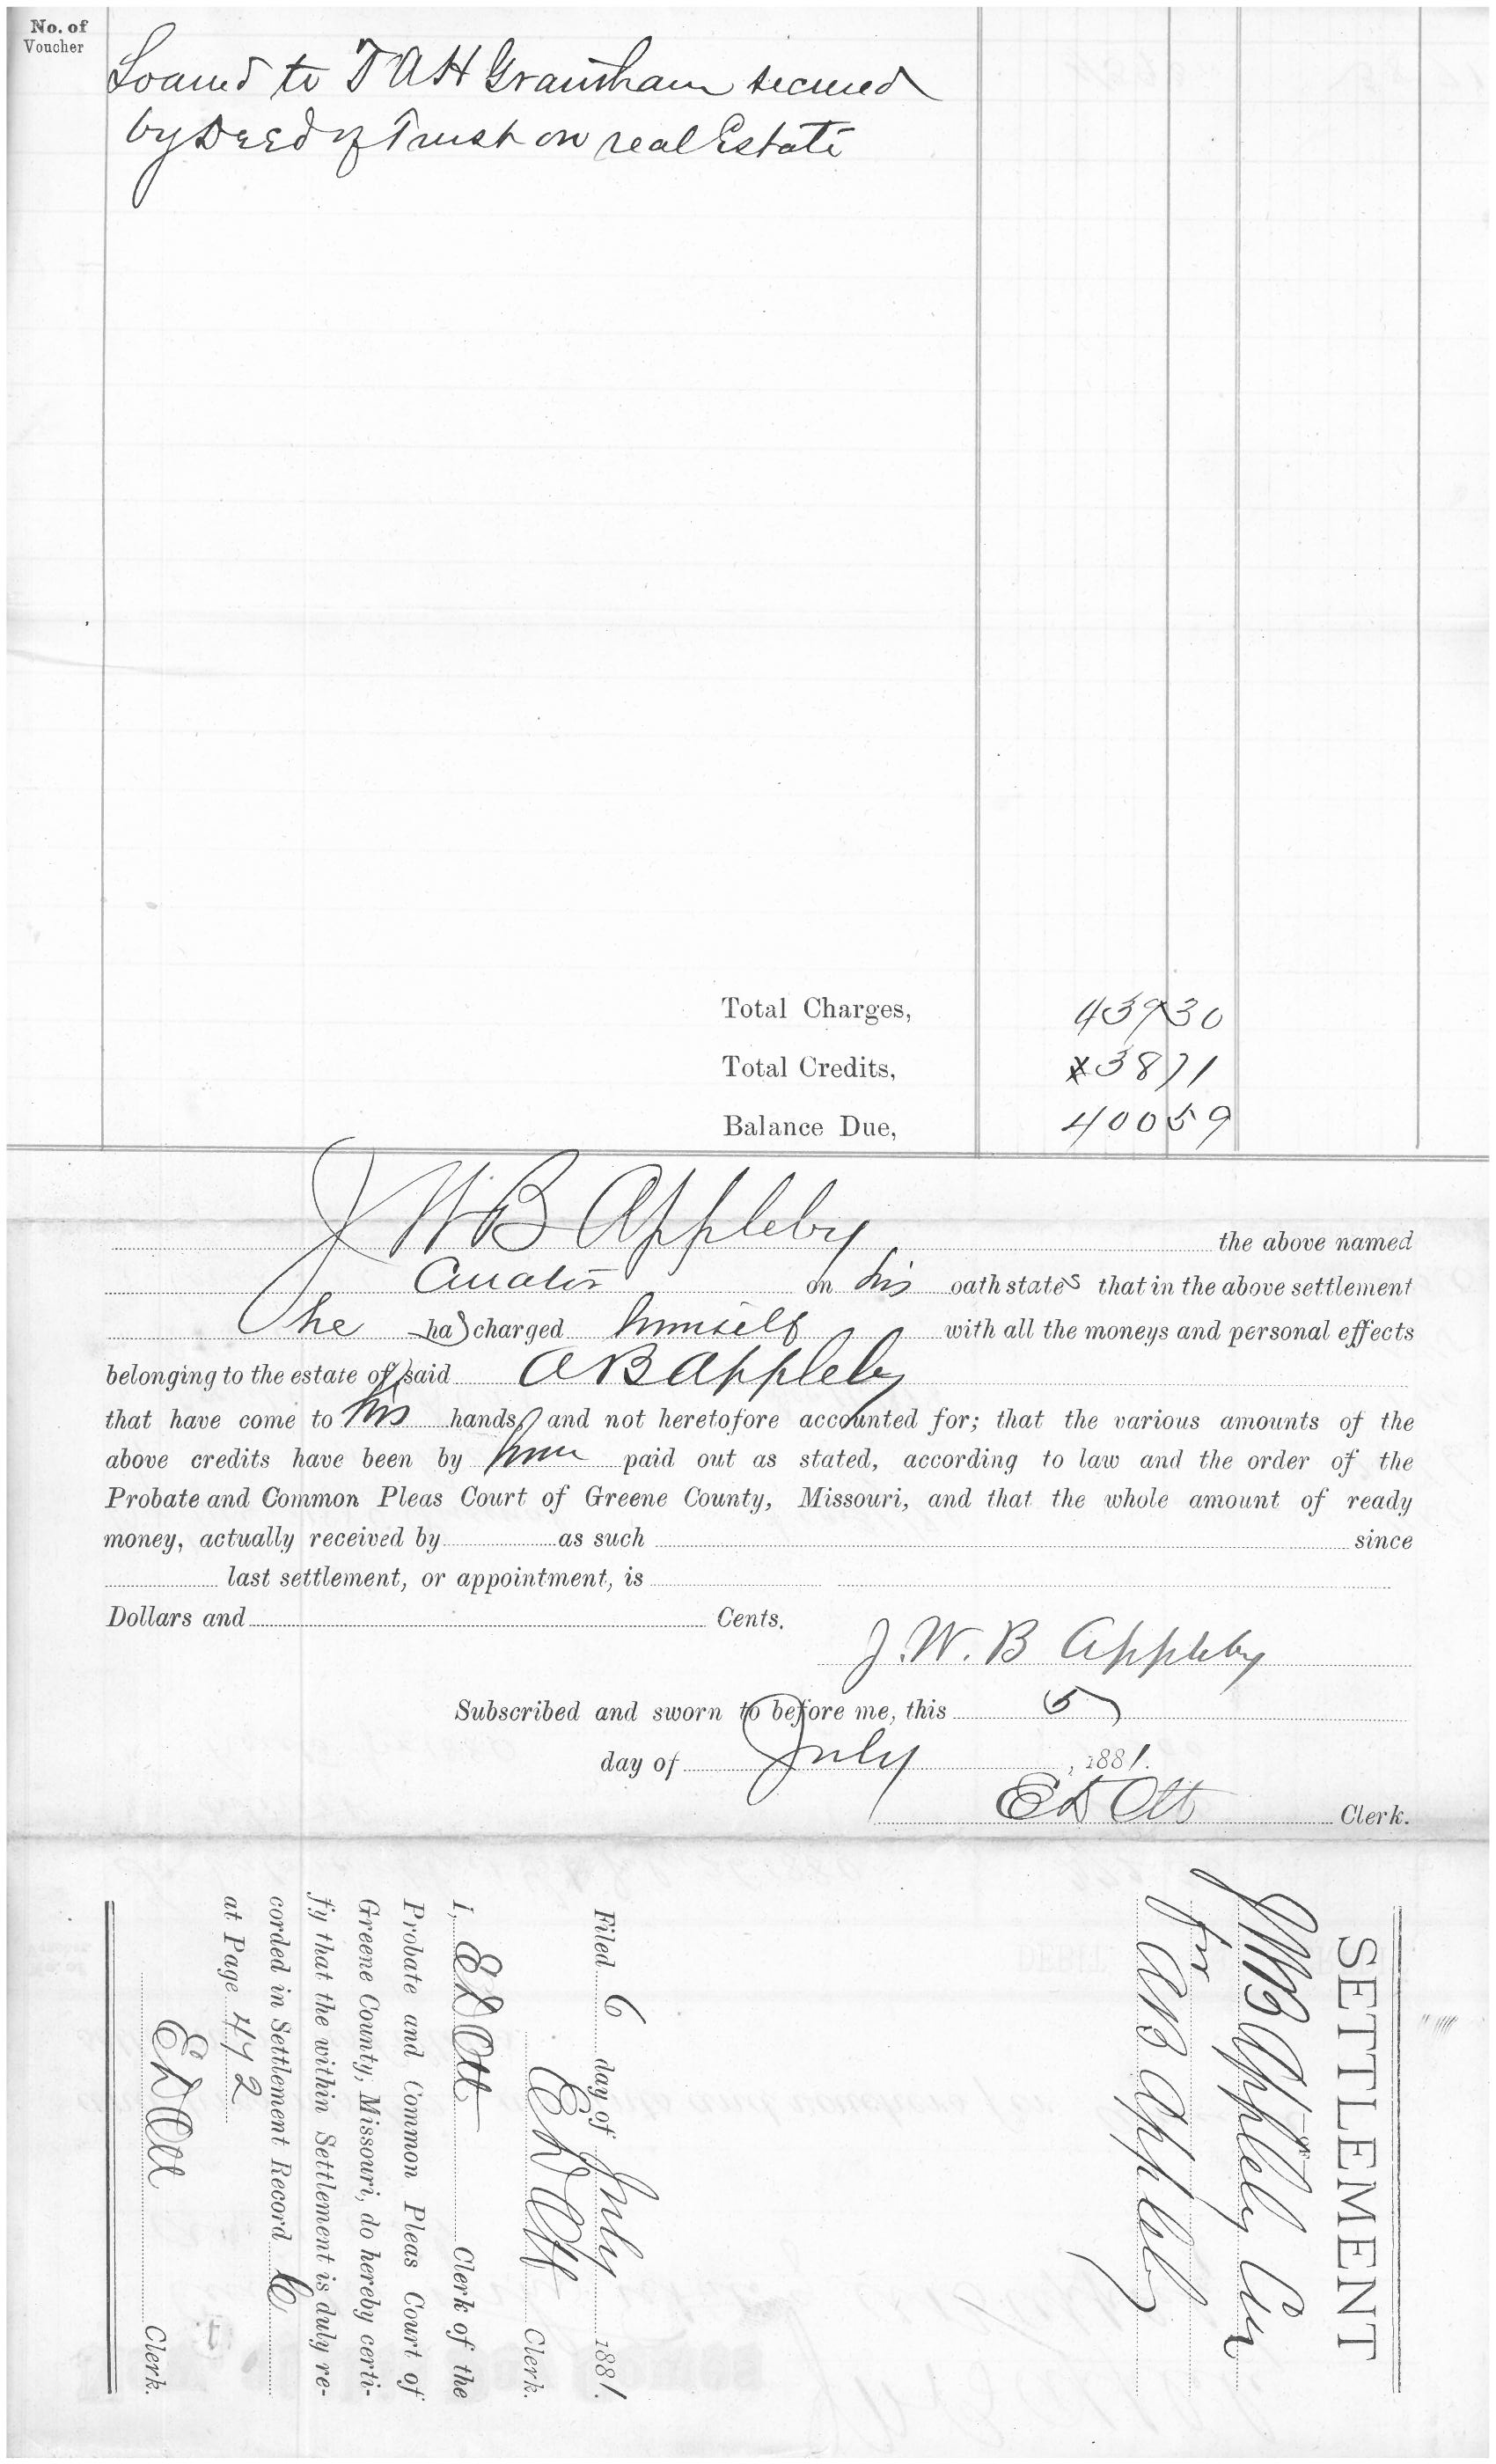 No. of
Voucher
Loaned to T A H Grantham secured
by Deed of Trust on real Estate
Total Charges, 439 30
Total Credits, 38 71
Balance Due, 400 59
J W B Appleby the above named
Curator on his oath states that in the above settlement
he has charged himself with all the moneys and personal effects
belonging to the estate of said A B Appleby
that have come to his hands, and not heretofore accounted for; that the various amounts of the
above credits have been by him paid out as stated, according to law and the order of the
Probate and Common Pleas Court of Greene County, Missouri, and that the whole amount of ready
money, actually received by as such since
last settlement, or appointment, is
Dollars and Cents.
J. W. B Appleby
Subscribed and sworn to before me, this 5
day of July, 1881.
E D Ott Clerk.
SETTLEMENT
J W B Appleby Cur
for
A B Appleby
Filed 6 day of July 1881.
E D Ott Clerk.
I, E D Ott Clerk of the
Probate and Common Pleas Court of
Greene County, Missouri, do hereby certi-
fy that the within Settlement is duly re-
corded in Settlement Record C
at Page 472
E D Ott Clerk.